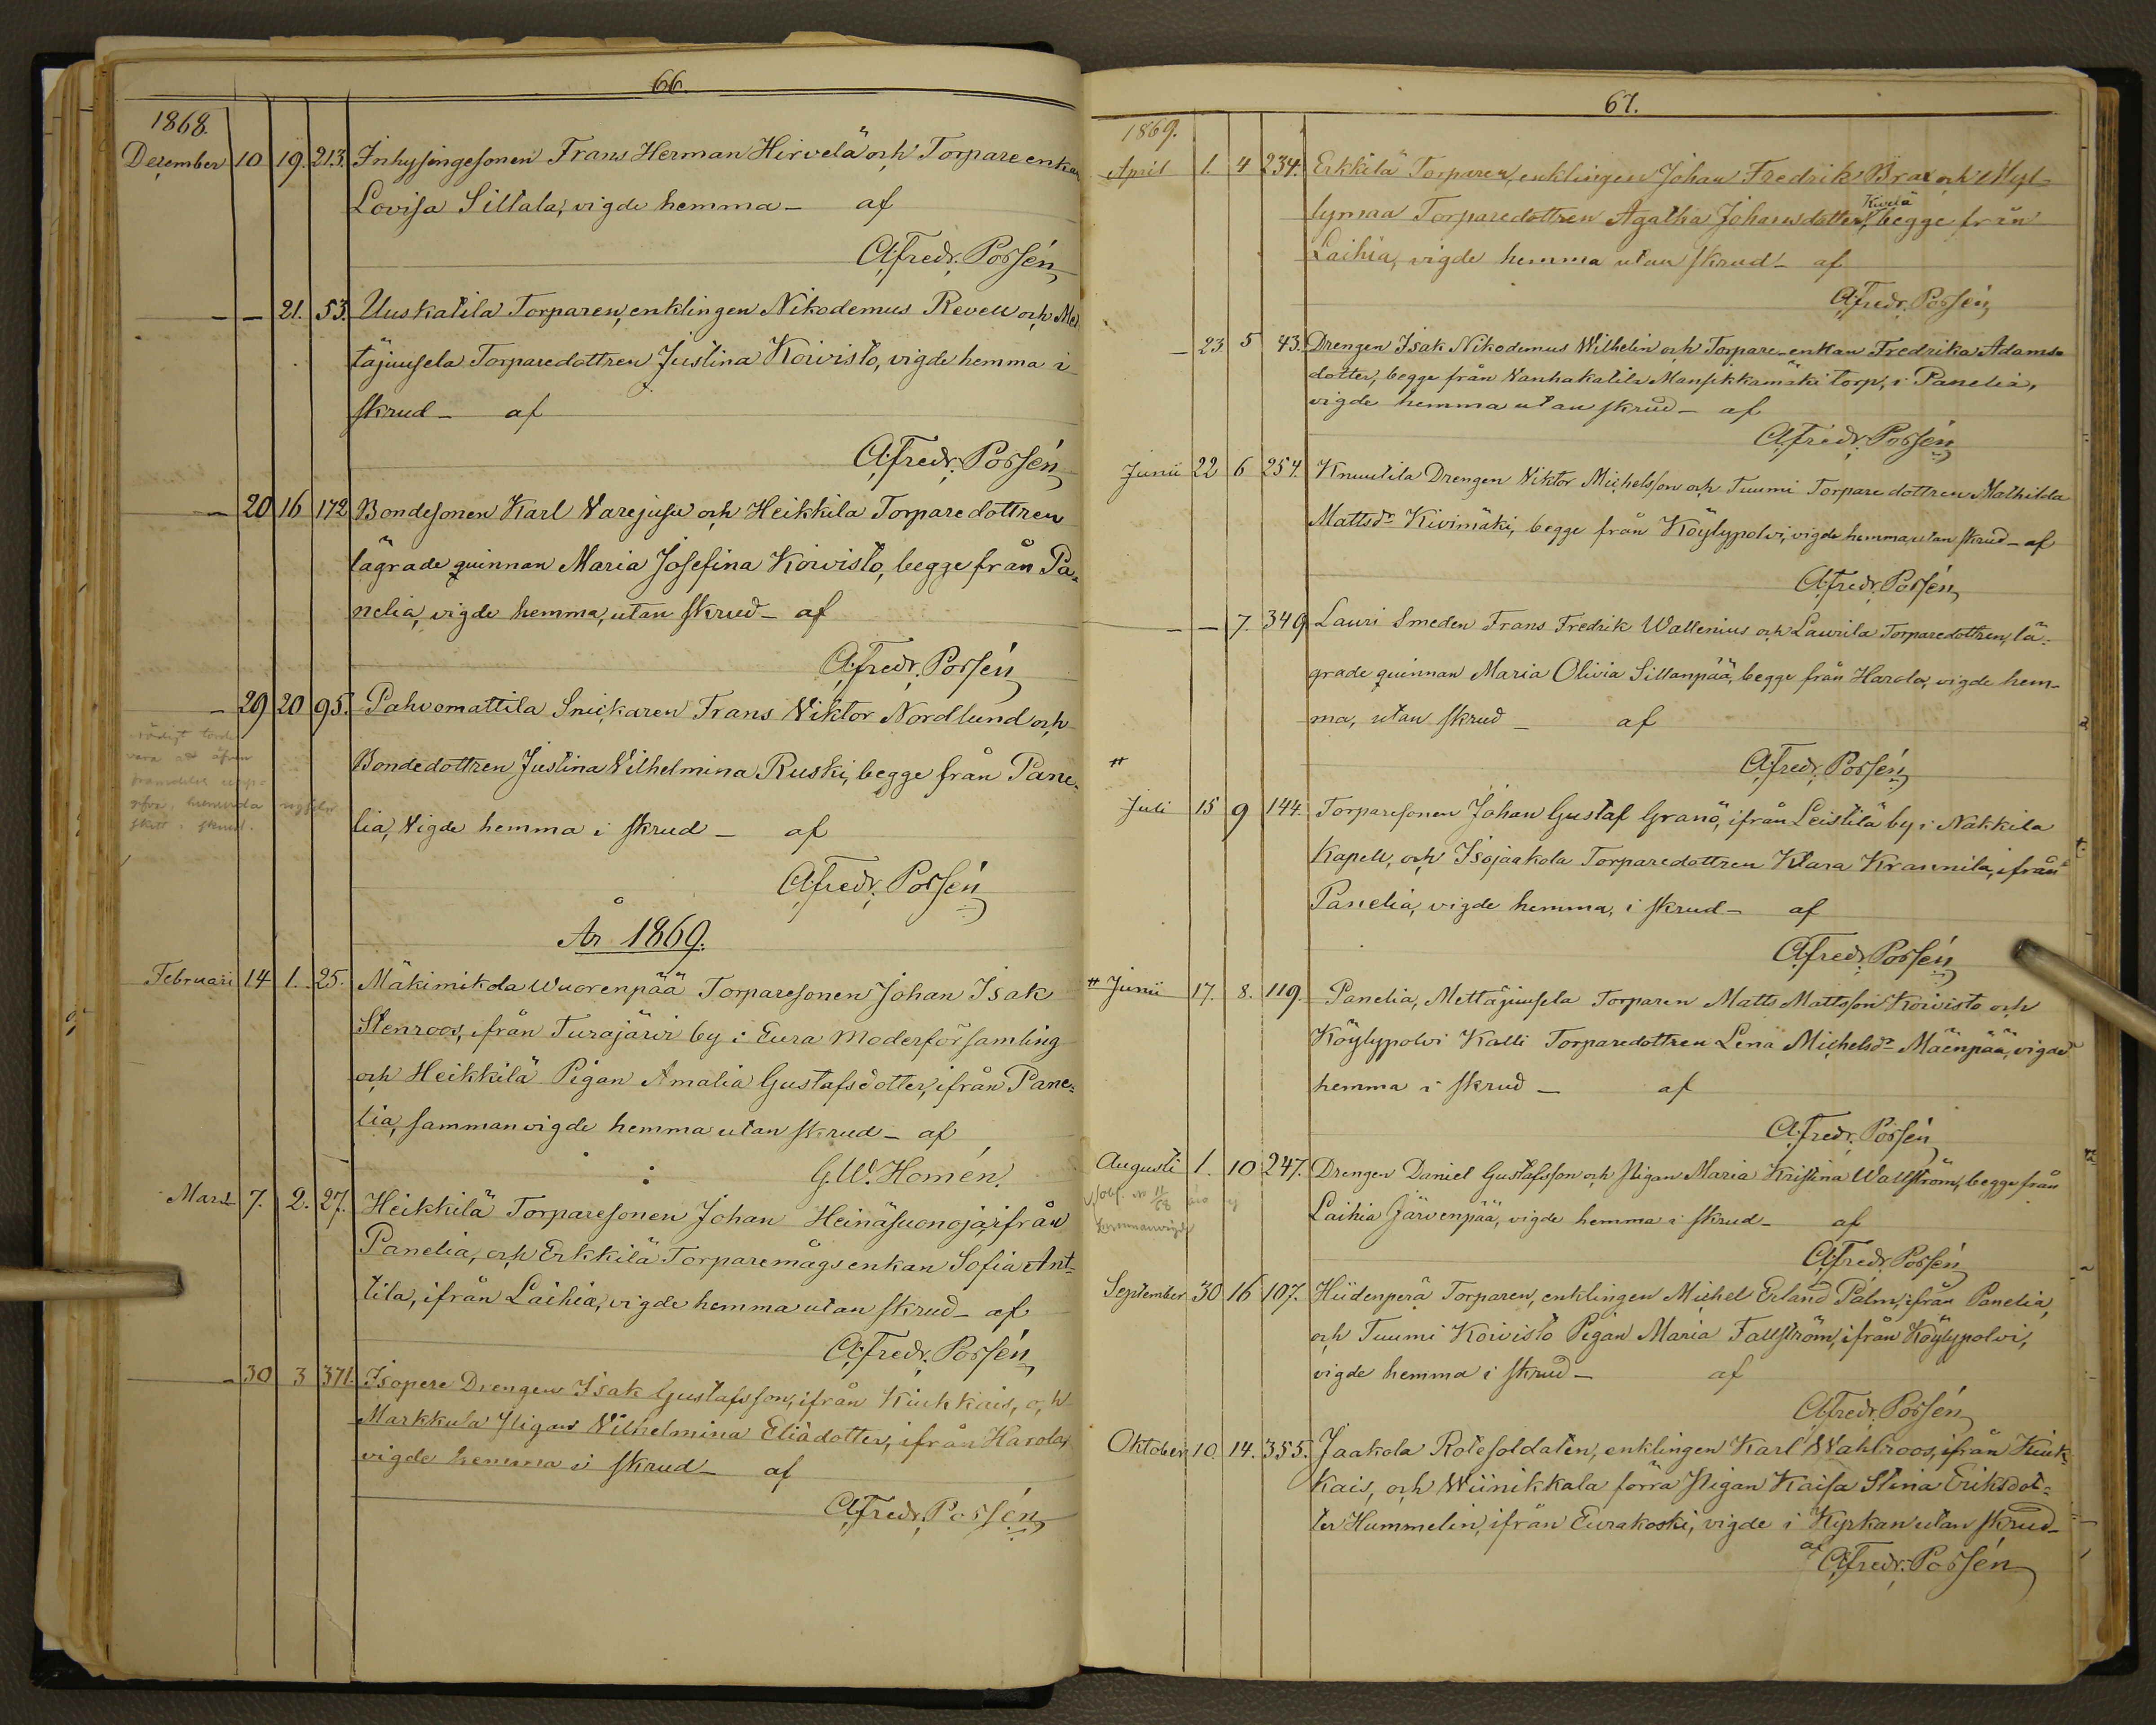 66.
1868.
December 10 19. 213. Inhysingesonen Frans Herman Hirvelä och Torpareenkan
Lovisa Sillala, vigde hemma — af
A. Fredr. Porsén
— — 21. 53. Uuskatila Torparen, enklingen Nikodemus Revell och Met
täjuusela Torparedottren Justina Koivisto, vigde hemma i
skrud — af
A. Fredr. Porsén
— 20 16 172 Bondesonen Karl Varejusu och Heikkilä Torparedottren
lägrade quinnan Maria Josefina Koivisto, begge från Pa-
nelia, vigde hemma, utan skrud — af
A. Fredr. Porsén
— 29 20 95. Pahvomattila Snickaren Frans Viktor Nordlund och
Bondedottren Justina Vilhelmina Ruski, begge från Pane-
lia, vigde hemma i skrud — af
A. Fredr. Porsén
År 1869.
Februari 14 1. 25. Mäkimikola Wuorenpää Torparesonen Johan Isak
Stenroos, ifrån Turajärvi by i Eura Moderförsamling
och Heikkilä Pigan Amalia Gustafsdotter, ifrån Pane-
lia, sammanvigde hemma utan skrud — af
G. W. Homén.
Mars 7. 2. 27. Heikkilä Torparesonen Johan Heinäsuonoja, ifrån
Panelia, och Erkkilä Torparemågsenkan Sofia Ant-
tila, ifrån Laihia, vigde hemma utan skrud — af
A. Fredr. Porsén
— 30 3 371. Isopere Drengen Isak Gustafsson, ifrån Kiukkais, och
Markkula Pigan Vilhelmina Eliädotter, ifrån Harola,
vigde hemma i skrud — af
A. Fredr. Porsén
67.
1869.
April 1. 4 234. Erkkilä Torparen, enklingen Johan Fredrik Brax och Myl-
lymaa Torparedottren Agatha Johansdotter Kuriä, begge från
Laihia, vigde hemma utan skrud — af
A. Fredr. Porsén
— 23 5 43. Drengen Isak Nikodemus Wilhelin och Torpare-enkan Fredrika Adams-
dotter, begge från Vanhakatila Mansikkamäki torp, i Panelia,
vigde hemma utan skrud — af
A. Fredr. Porsén
Junii 22 6 254. Knuutila Drengen Viktor Michelsson och Tuumi Torparedottren Mathilda
Mattsdr Kivimäki, begge från Köylypolvi, vigde hemma utan skrud — af
A. Fredr. Porsén
— — 7. 349 Lauri Smeden Frans Fredrik Wallenius och Laurila Torparedottren, lä-
grade quinnan Maria Olivia Sillanpää, begge från Harola, vigde hem-
ma, utan skrud — af
A. Fredr. Porsén
Juli 15 9 144. Torparesonen Johan Gustaf Granö, ifrån Leistilä by i Nakkila
Kapell, och Isojaakola Torparedottren Klara Krannila, ifrån
Panelia, vigde hemma, i skrud — af
A. Fredr. Porsén
Junii 17. 8. 119. Panelia, Mettäjuusela Torparen Matts Mattsson Koivisto och
Köylypolvi Kalli Torparedottren Lena Michelsdr Mäenpää, vigde
hemma i skrud — af
A. Fredr. Porsén
Augusti 1. 10 247. Drengen Daniel Gustafsson och Pigan Maria Kristina Wallström, begge från
Laihia Järvenpää, vigde hemma i skrud — af
A. Fredr. Porsén
September 30 16 107. Hiidenperä Torparen, enklingen Michel Erland Palm, ifrån Panelia,
och Tuumi Koivisto Pigan Maria Fallström, ifrån Köylypolvi,
vigde hemma i skrud — af
A. Fredr. Porsén
Oktober 10. 14. 355. Jaakola Rotesoldaten, enklingen Karl Wahlroos, ifrån Kiuk-
kais, och Wiinikkala förra Pigan Kaisa Stina Eriksdot-
ter Hummelin, ifrån Eurakoski, vigde i Kyrkan utan skrud —
af A. Fredr. Porsén